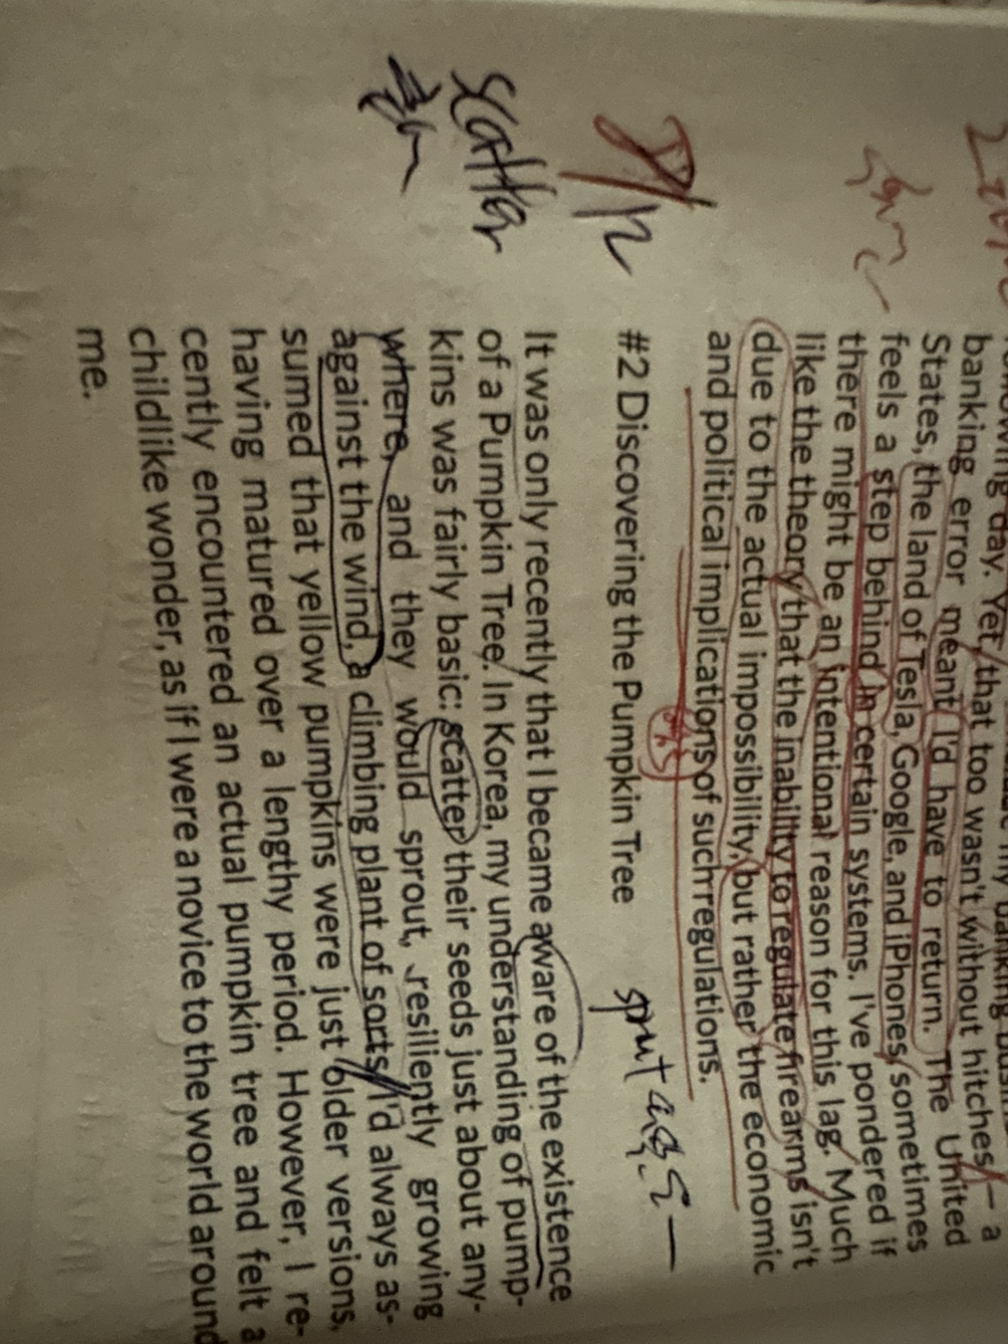 ing day. Yet, that too wasn't without hitches – a
banking error meant I'd have to return. The United
States, the land of Tesla, Google, and iPhones, sometimes
feels a step behind in certain systems. I've pondered if
there might be an intentional reason for this lag. Much
like the theory that the inability to regulate firearms isn't
due to the actual impossibility, but rather the economic
and political implications of such regulations.
#2 Discovering the Pumpkin Tree
scatter
It was only recently that I became aware of the existence
of a Pumpkin Tree. In Korea, my understanding of pump-
kins was fairly basic: scatter their seeds just about any-
where, and they would sprout, resiliently growing
against the wind, a climbing plant of sorts. I'd always as-
sumed that yellow pumpkins were just older versions,
having matured over a lengthy period. However, I re-
cently encountered an actual pumpkin tree and felt a
childlike wonder, as if I were a novice to the world around
me.